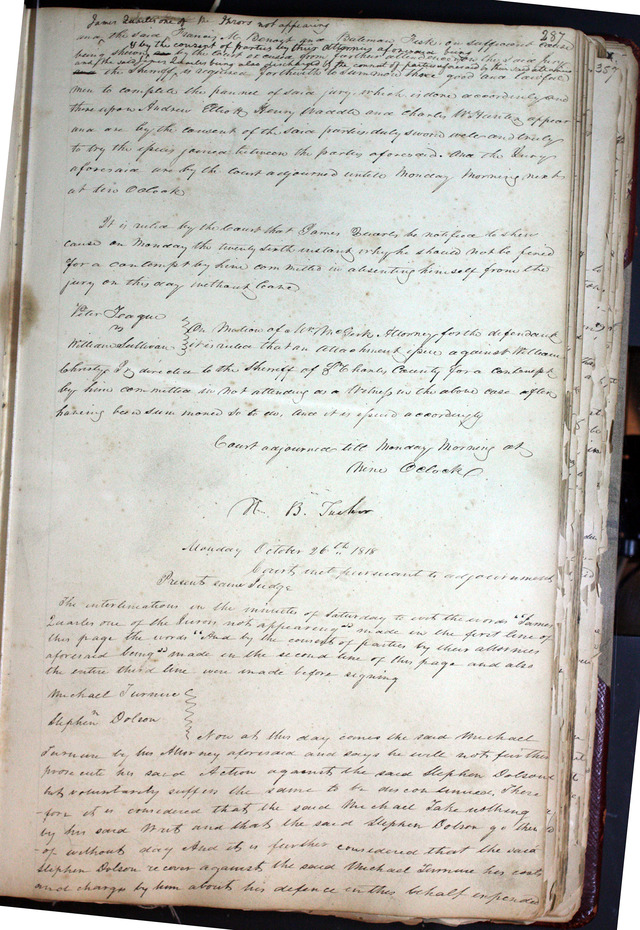 James Quarles one of the Jurors not appearing
287
and the said Francis M. Benoist and Bateman Fisk on sufficient cause
& by the consent of parties by their attorneys aforesaid being
being shewn are by the Court excused from further attendance on this said jury
and the said James Quarles being also discharged by the consent of parties aforesaid by their said attornies
the Sheriff is required forthwith to summon three good and lawful
men to complete the pannel of said jury which is done accordingly and
thereupon Andrew Elliott Henry Waddle and Charles W Hunter appear
and are by the consent of the said parties duly sworn well and truly
to try the issues joined between the parties aforesaid. And the Jury
aforesaid are by the court adjourned untill Monday Morning next
at ten O Clock
It is ruled by the Court that James Quarles be notified to shew
cause on Monday the twenty sixth instant why he should not be fined
for a contempt by him committed in absenting himself from the
jury on this day without leave
Peter Teague
vs
William Sullivan
On Motion of Mr McGirk Attorney for the defendant
it is ruled that an Attachment issue against William
Christy Jr directed to the Sheriff of St Charles County for a contempt
by him committed in not attending as a Witness in the above case after
having been summoned so to do, and it is issued accordingly
Court adjourned till Monday Morning at
Nine O Clock
N. B. Tucker
Monday October 26th 1818
Court met pursuant to adjournment
Present same Judge
The interlineations in the minutes of Saturday to wit the words "James
Quarles one of the Jurors not appearing" made in the first line of
this page the words "And by the consent of parties by their attornies
aforesaid being" made in the second line of this page and also
the entire third line were made before signing
Michael Turnure
vs
Stephen Dolson
Now at this day comes the said Michael
Turnure by his Attorney aforesaid and says he will not further
prosecute his said Action against the said Stephen Dolson
but voluntarily suffers the same to be discontinued. There
fore it is considered that the said Michael Take nothing
by his said Writ and that the said Stephen Dolson go there
of without day And it is further considered that the said
Stephen Dolson recover against the said Michael Turnure his costs
and charges by him about his defence in this behalf expended
357